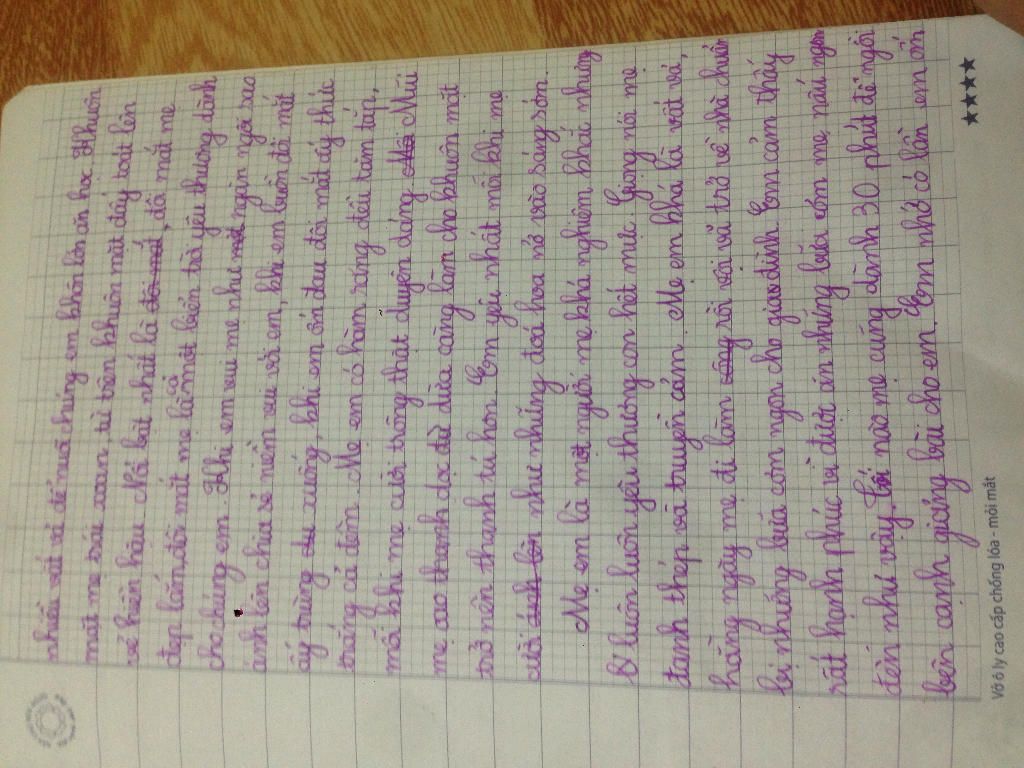 nhiều vất vả để nuôi chúng em khôn lớn ăn học. Khuôn
mặt mẹ trái xoan, từ trên khuôn mặt đấy toát lên
vẻ hiền hậu. Nổi bật nhất là đôi mắt, đôi mắt mẹ
đẹp lắm, đôi mắt mẹ là cả một biển trời yêu thương dành
cho chúng em. Khi em vui mẹ như ngàn ngôi sao
ánh lên chia sẻ niềm vui với em, khi em buồn đôi mắt
ấy trùng xuống, khi em ốn đau đôi mắt ấy thức
trắng cả đêm. Mẹ em có hàm răng đều tăm tắp,
mỗi khi mẹ cười trông thật duyên dáng. Mũi
mẹ cao thanh dọc dừ dừa càng làm cho khuôn mặt
trở nên thanh tú hơn. Em yêu nhất mỗi khi mẹ
cười như những đoá hoa nở vào sáng sớn.
Mẹ em là một người mẹ khá nghiêm khắc nhưng
luôn luôn yêu thương con hết mực. Giọng nói mẹ
đanh thép và truyền cảm. Mẹ em khá là vất vả,
hằng ngày mẹ đi làm rồi vội vã trở về nhà chuẩn
bị những bữa cơm ngon cho gia đình. Em cảm thấy
rất hạnh phúc vì được ăn những bữa cơm mẹ nấu ngon
đến như vậy. tối nào mẹ cũng dành 30 phút để ngồi
bên cạnh giảng bài cho em. Em nhớ có lần em ốn
Vở 6 ly cao cấp chống lóa - mỏi mắt
★★★★